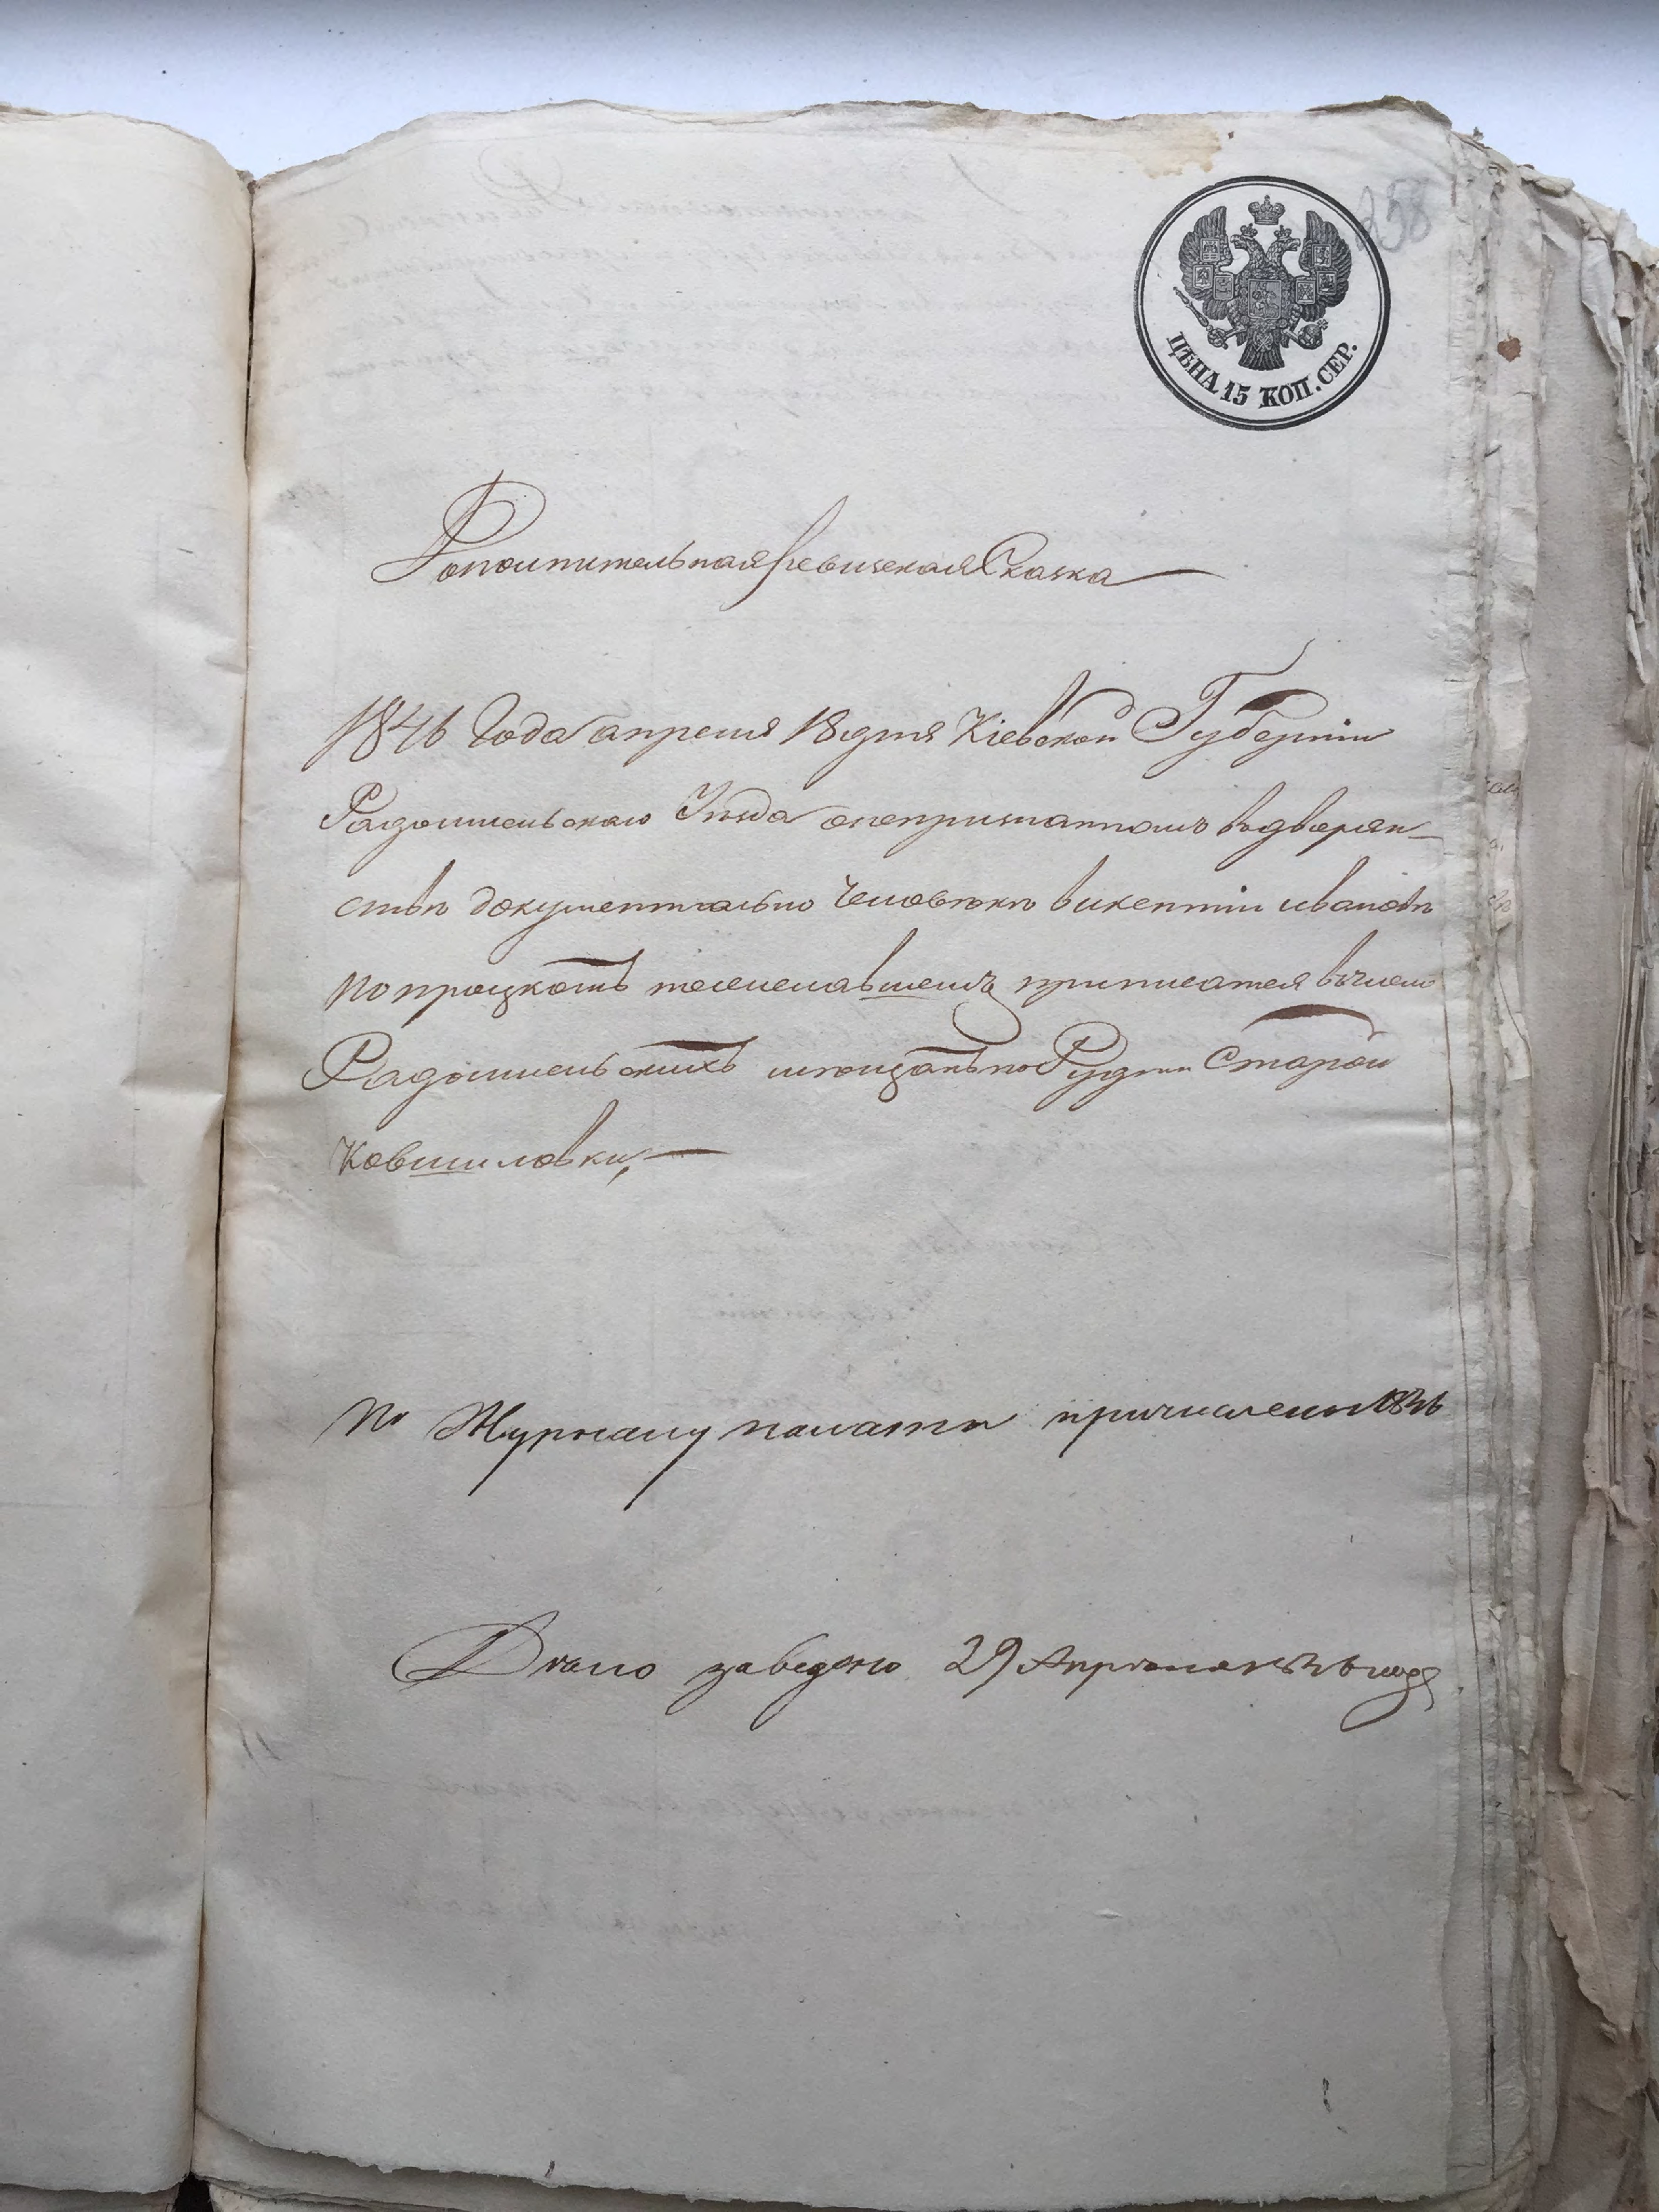 258
ЦѢНА 15 КОП. СЕР.
Дополнительная ревизская Сказка
1846 Года апреля 18 дня Кіевской Губерніи
Радомысльскаго Уѣзда о непризнанномъ въ дворян-
ствѣ документально человѣкѣ викентіи ивановѣ
приписатся въ число
Радомысльскихъ мѣщанъ по Рудни Старой
Ковшиловки,
По Журналу палаты причислены 1846
Дѣло заведено 29 Апрѣля 1846 года